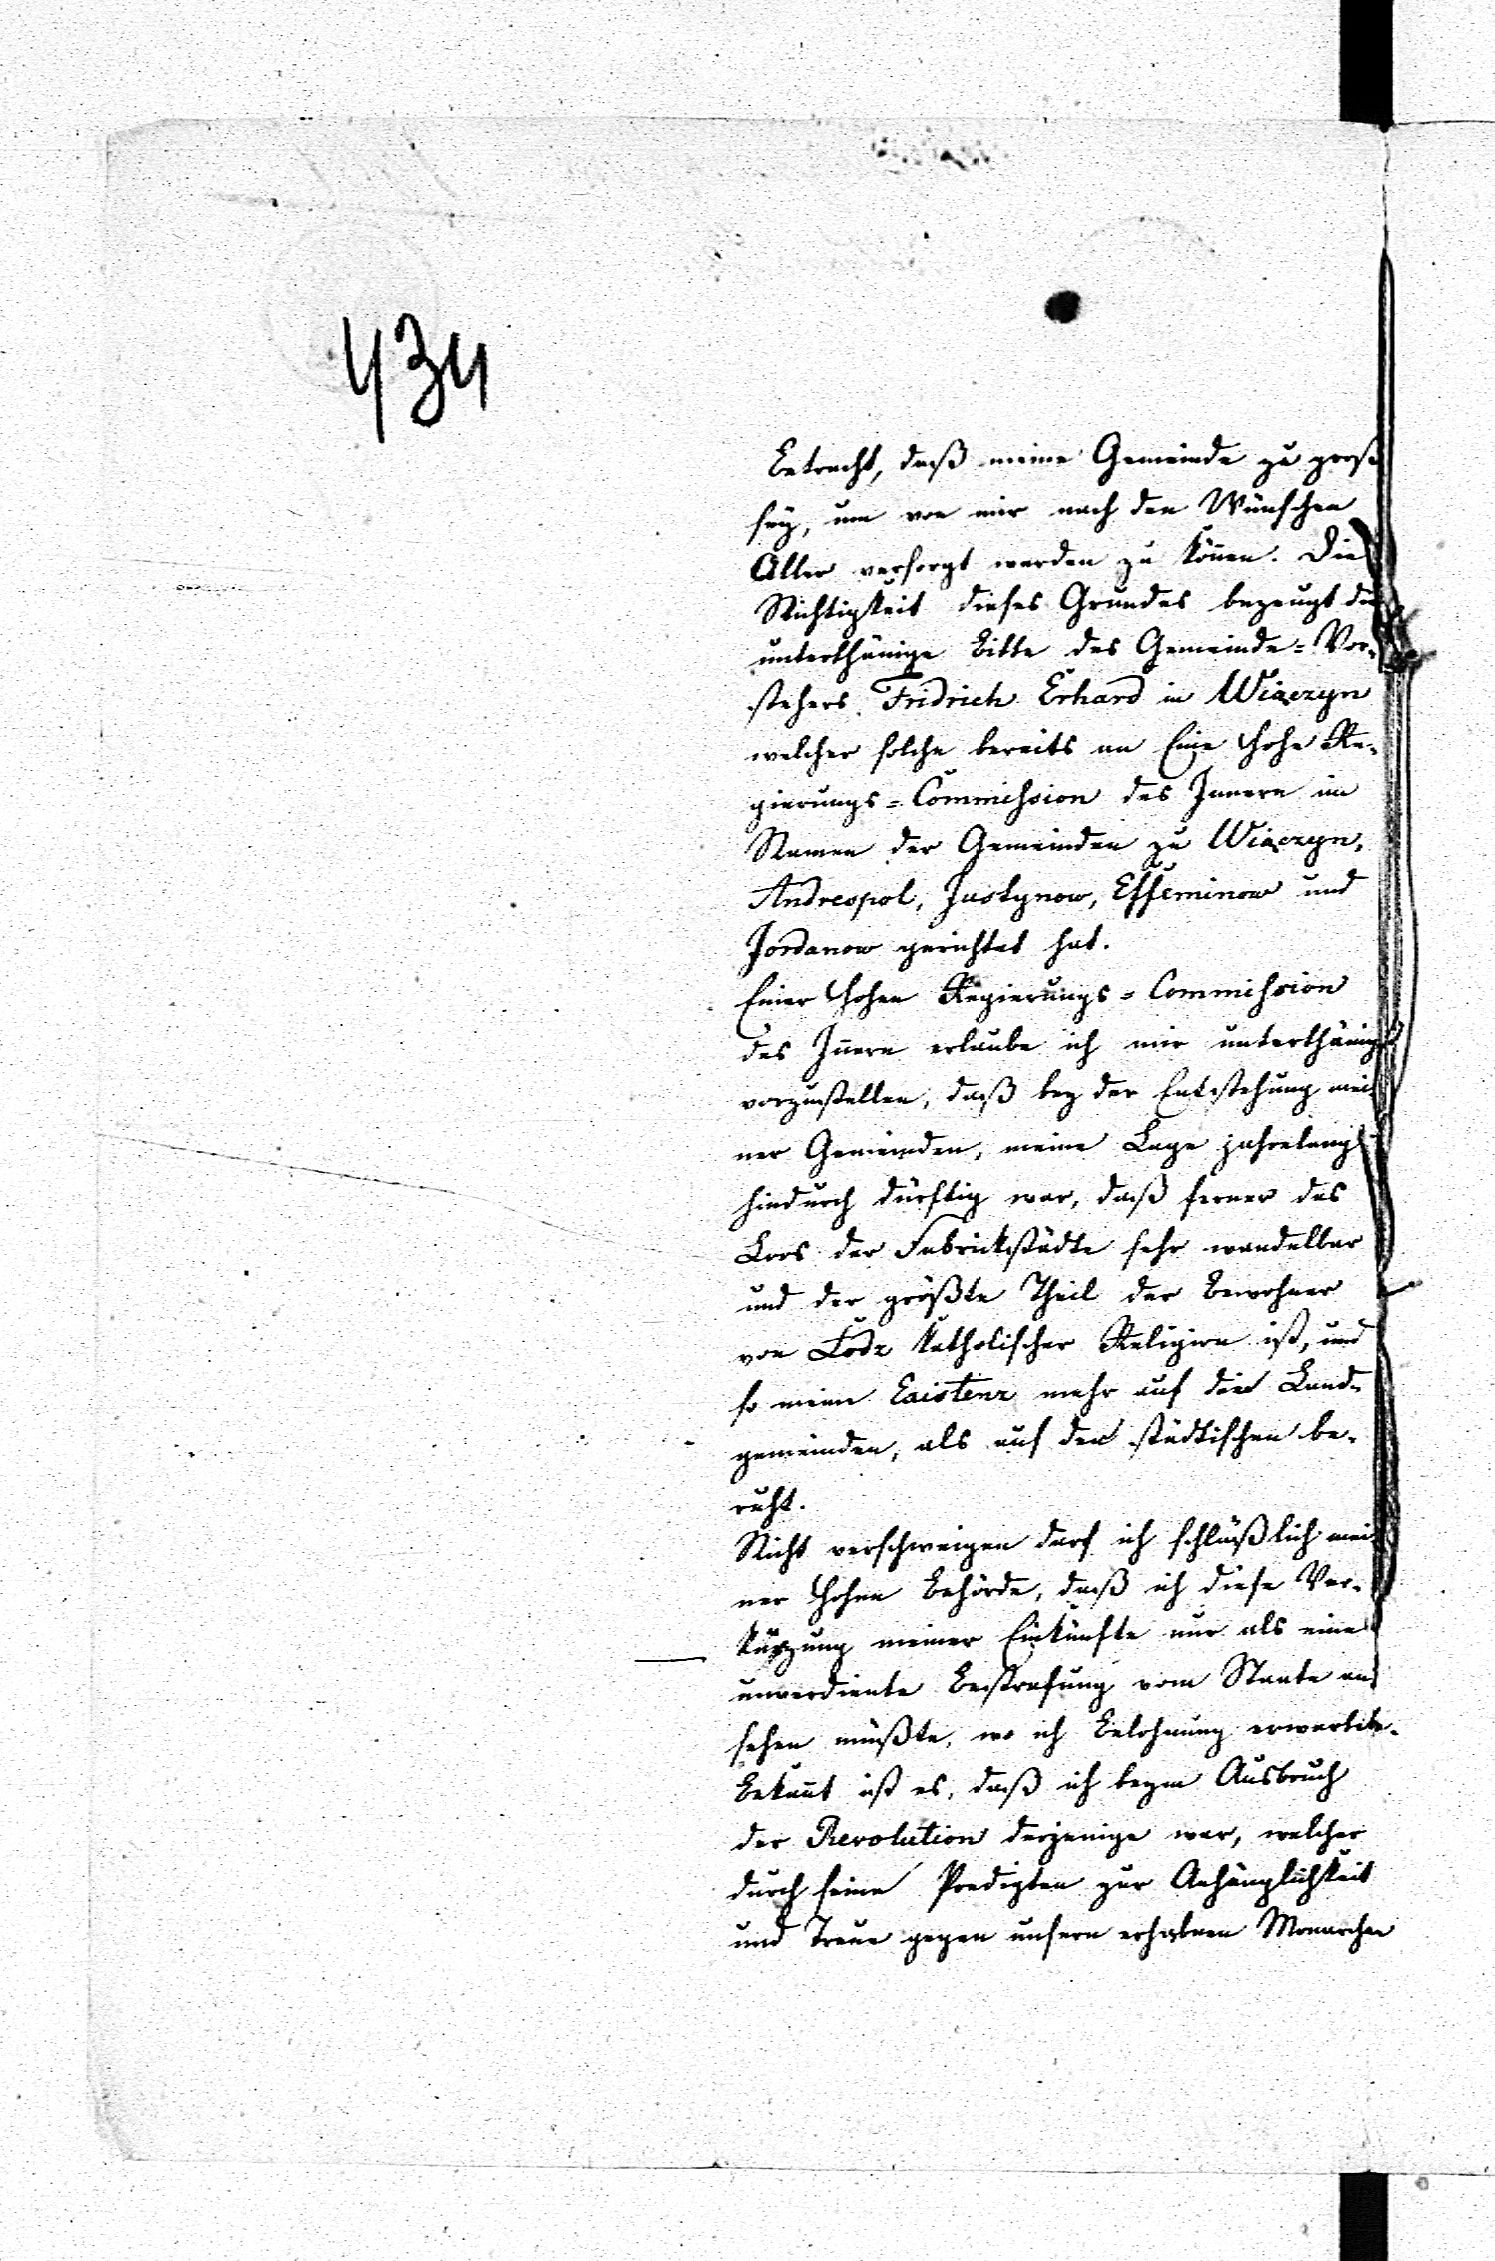 434
Betracht, daß meine Gemeinde zu groß
sey, um von mir nach den Wünschen
Aller versorgt werden zu können. Die
Richtigkeit dieses Grundes bezeugt die
unterthänige Bitte des Gemeinde=Vor-
stehers Fridrich Erhard in Wiaczyn
welcher solche bereits an Eine Hohe Re-
gierungs=Commission des Innern im
Namen der Gemeinden zu Wiaczyn,
Andreopol, Justynow, Effeminow und
Jordanow gerichtet hat.
Einer Hohen Regierungs=Commission
des Innern erlaube ich mir unterthänigst
vorzustellen, daß bey der Entstehung mei-
ner Gemeinden, meine Lage jahrelang
hindurch dürftig war, daß ferner das
Loos der Fabrickstädte sehr wandelbar
und der größte Theil der Bewohner
von Łodz katholischer Religion ist, und
so meine Existenz mehr auf den Land-
gemeinden, als auf den städtischen be-
ruht.
Nicht verschweigen darf ich schlüßlich mei-
ner Hohen Behörde, daß ich diese Ver-
kürzung meiner Einkünfte nur als eine
unverdiente Bestrafung vom Staate an
sehen müßte, wo ich Belohnung erwartete.
Bekannt ist es, daß ich beym Ausbruch
der Revolution derjenige war, welcher
durch seine Predigten zur Anhänglichkeit
und Treue gegen unsern erhabnen Monarchen